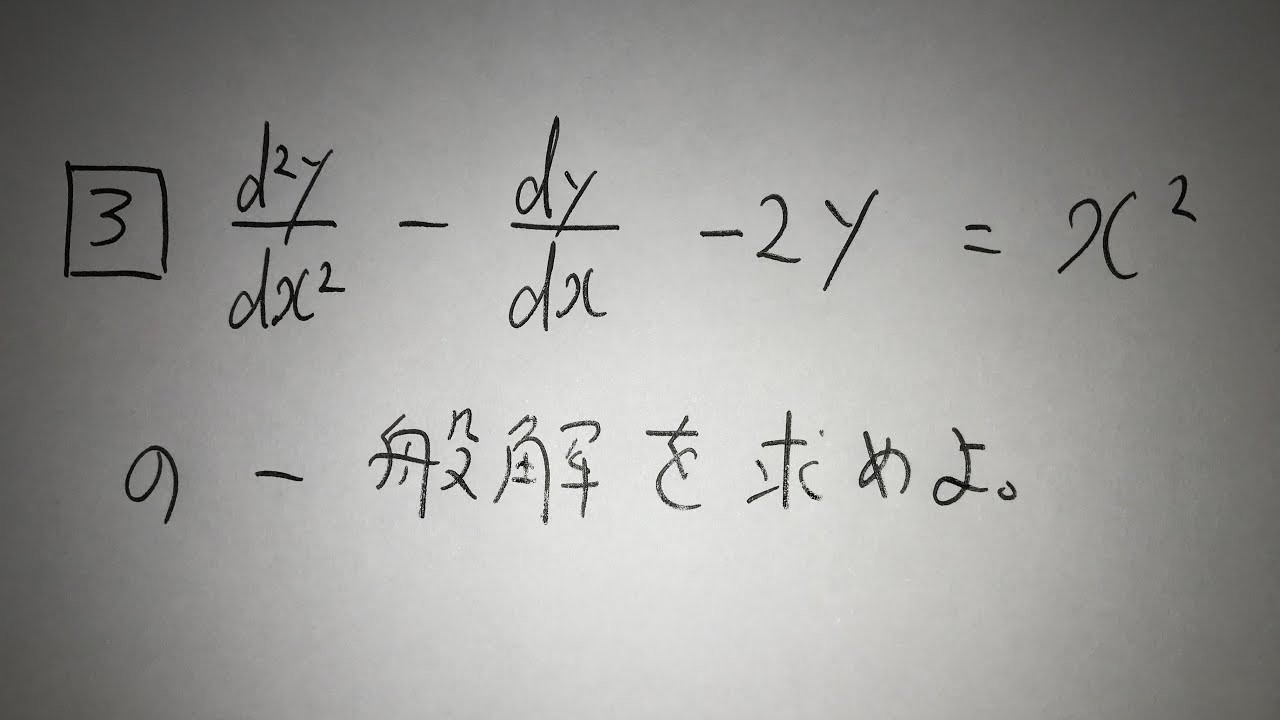 3 d²y/dx² - dy/dx - 2y = x²
の一般解を求めよ。